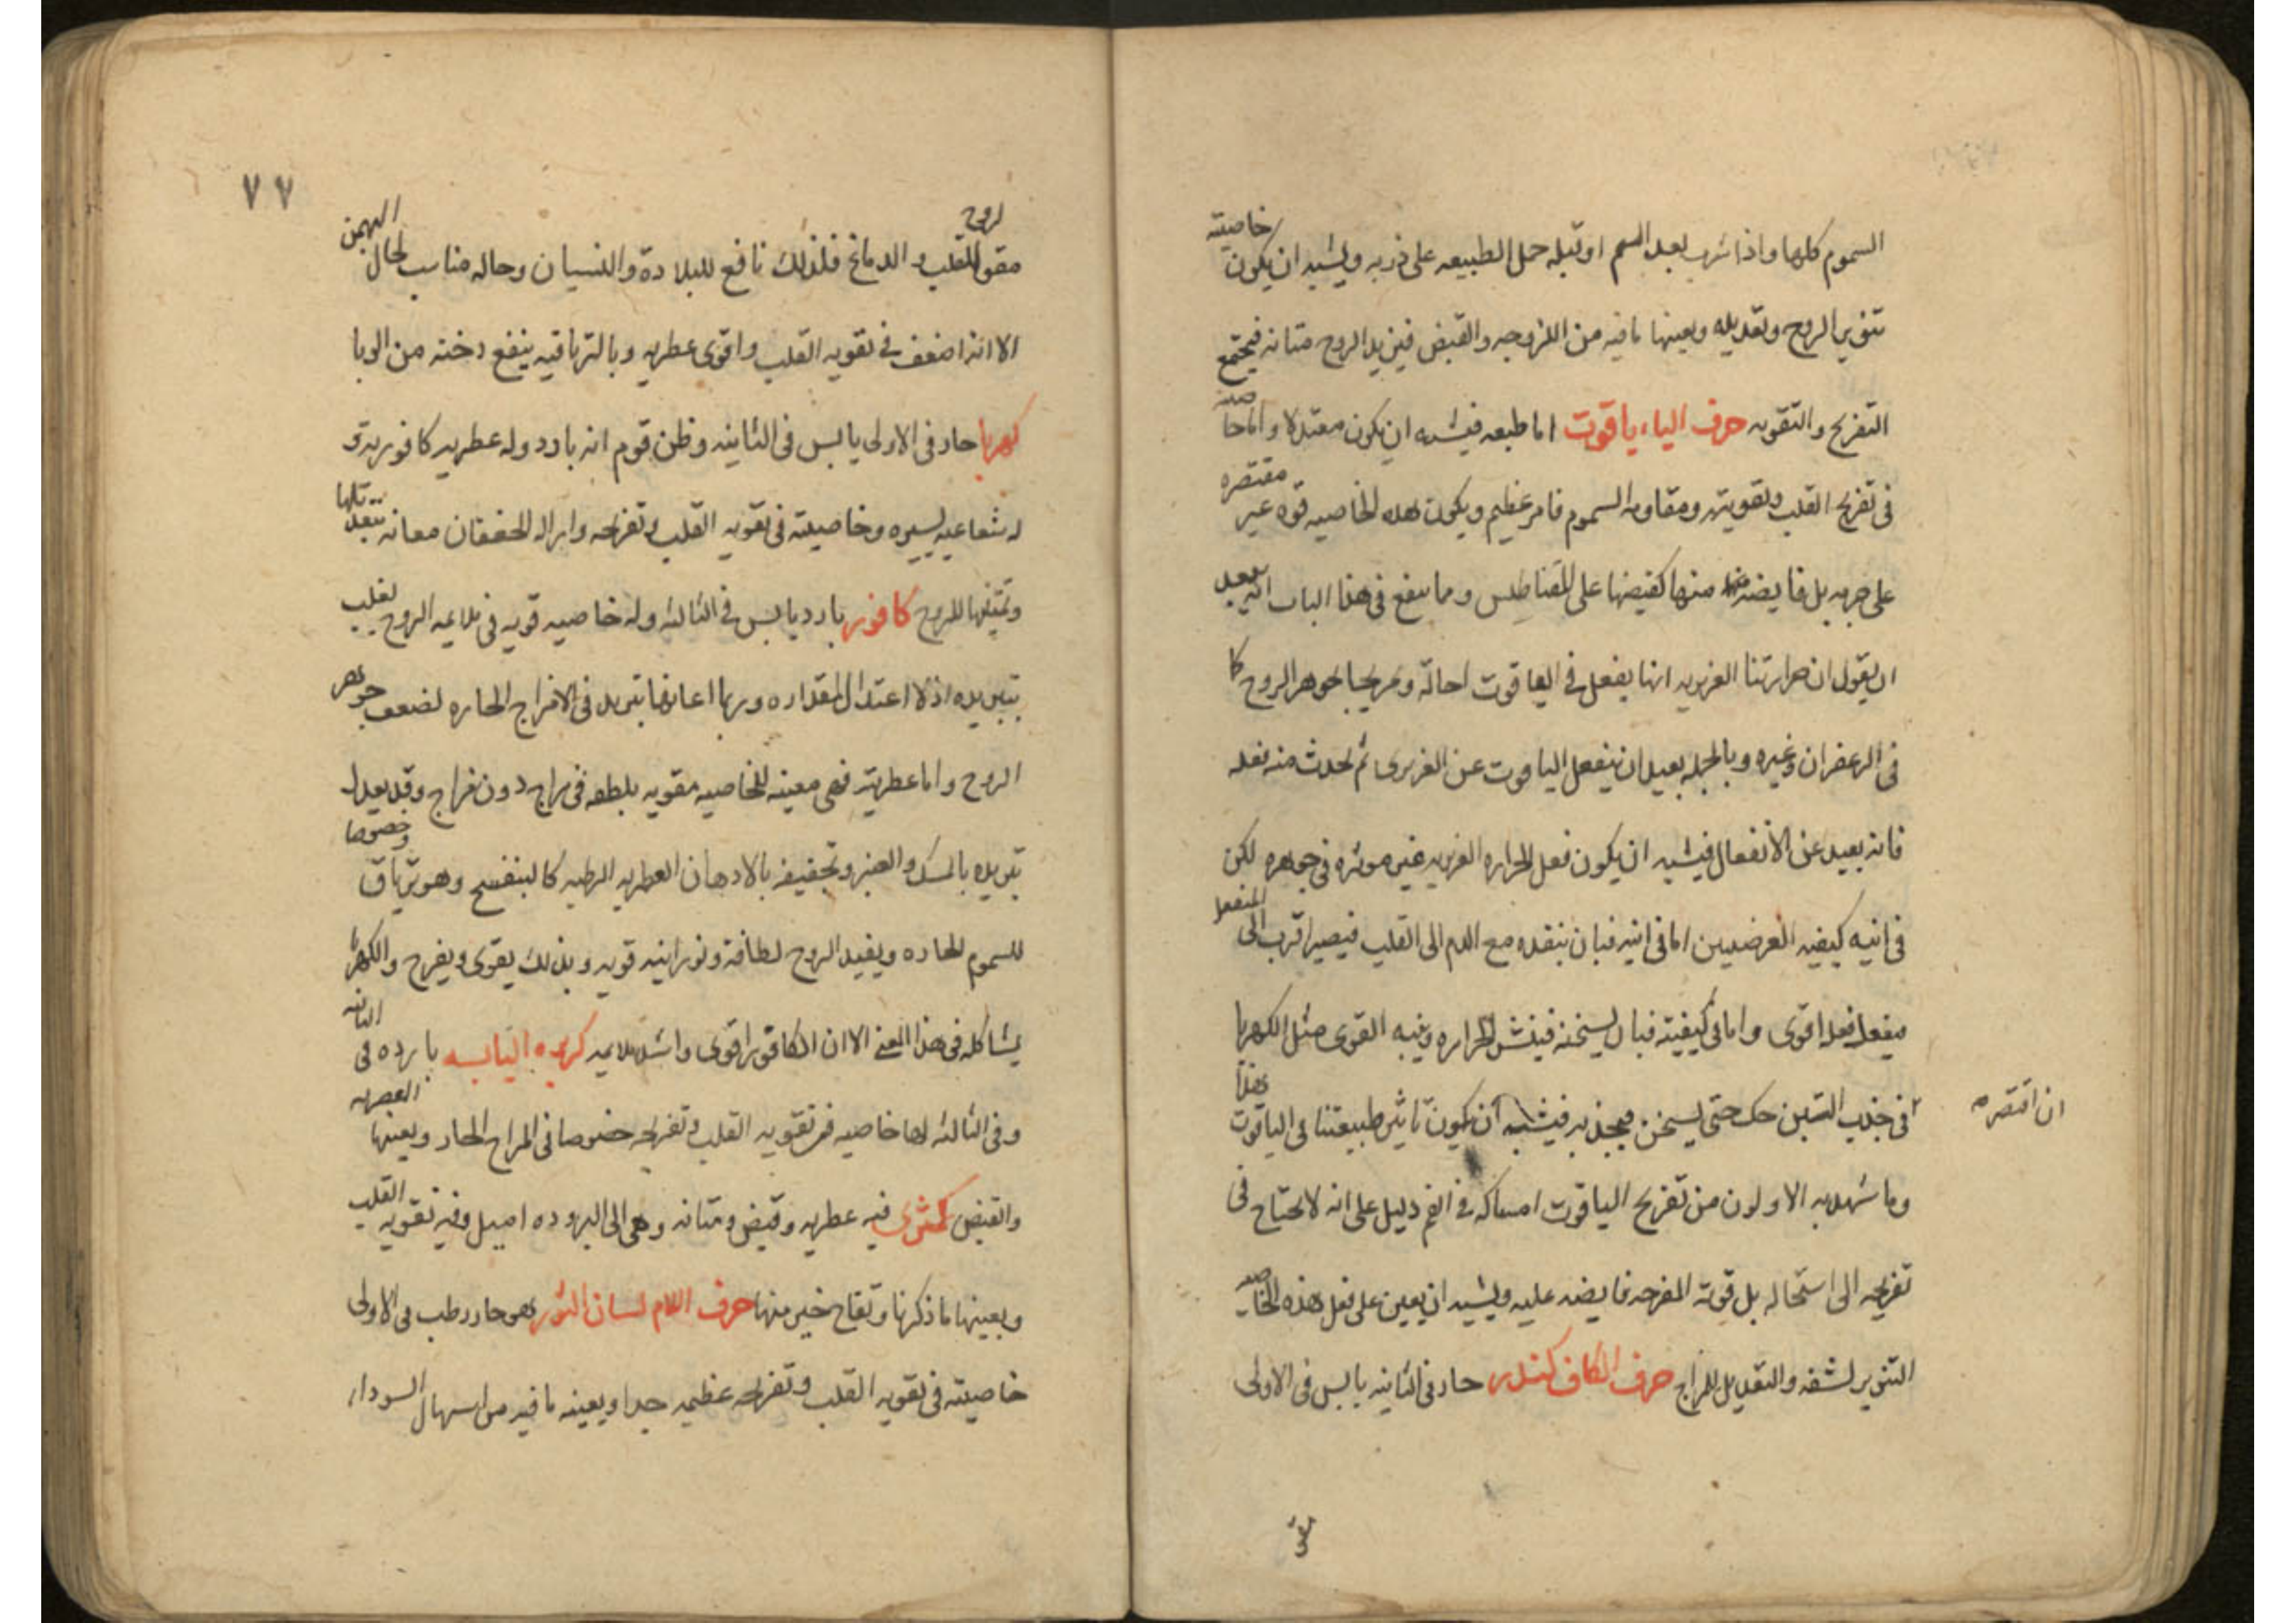 السموم كلها واذا شرب بعد السم او قبله حمل الطبيعه على ذربه ويشبه ان يكون خاصيته
تنوير الروح وتعديله ويعينها ما فيه من اللزوجه والقبض فيزيد الروح متانه فيجتمع
التفريح والتقويه حرف الياء ياقوت اما طبعه فيشبه ان يكون معتدلا واما خاصيته
فى تفريح القلب وتقويته ومقاومه السموم فامر عظيم ويكون هذه الخاصيه قوه غير مقتصره
على جرمه بل فايضه منها كفيضها على المقناطيس ومما ينفع فى هذا الباب انه يبعد
ان يقول ان حرارتنا الغريزيه انها يفعل فى الياقوت احالة وتمزيجا بجوهر الروح كا
فى الزعفران وغيره وبالجمله بعيد ان ينفعل الياقوت عن الغريزى ثم يحدث منه فعله
فانه بعيد عن الانفعال فيشبه ان يكون فعل الحراره الغريزيه غير موثره فى جوهره لكن
فى انيه كيفيه العرضيين اما فى انيته فبان ينفده مع الدم الى القلب فيصير اقرب الى المنفعل
فيفعل فعله اقوى واما فى كيفيته فبان يسخنه فينشر الحراره وينبه القوى مثل الكهربا
فى جذب التبن حك حتى يسخن فيجذبه فيشبه ان يكون تاثير طبيعتنا فى الياقوت هذا
ان اقتصره
وما شهد به الاولون من تفريح الياقوت امساكه فى الفم دليل على انه لا يحتاج فى
تفريحه الى استحاله بل قوته المفرحه فايضه عليه ويشبه ان يعين على فعل هذه الخاصيه
التنوير لشفه والتعديل للمزاج حرف الكاف كندر حار فى الثانيه يابس فى الاولى
مقو
٧٧
مقو لروح القلب والدماغ فلذلك نافع للبلادة والنسيان وحاله مناسب لحال البهمن
الا انه اضعف فى تقويه القلب واقوى عطريه وبالترياقيه ينفع دخنه من الوبا
كهربا حار فى الاولى يابس فى الثانيه وظن قوم انه بارد وله عطريه كافوريه و
له شعاعيه يسيره وخاصيته فى تقويه القلب وتفريحه وازاله الخفقان معانه بتعديلها
وتمتينها للروح كافور بارد يابس فى الثالثه وله خاصيه قويه فى ملايمه الروح يغلب
بتبريده اذ لا اعتدال لمقداره وربما اعانها تبريد فى الامزاج الحاره لضعف جوهر
الروح واما عطريته فهى معينه للخاصيه مقويه بلطفه فى مزاج دون مزاج وقد يعدل
تبريده بالمسك والعنبر وتجفيفه بالادهان العطريه الرطبه كالبنفسج وهو ترياق وخصوصا
للسموم الحاره ويفيد الروح لطافة ونورانيه قويه وبذلك يقوى ويفرح والكهربا
يشاكله فى هذا المعنى الا ان الكافور اقوى واشد ملايمه كزبره اليابسه بارده فى الثانيه
وفى الثالثه لها خاصيه فى تقويه القلب وتفريحه خصوصا فى المزاج الحار ويعينها العطريه
والقبض كمثرى فيه عطريه وقبض ومتانه وهى الى البروده اميل وفيه تقويه القلب
ويعينها ما ذكرنا وتفاح خير منها حرف اللام لسان الثور هو حار رطب فى الاولى
خاصيته فى تقويه القلب وتفريحه عظيمه جدا ويعينه ما فيه من اسهال السودا